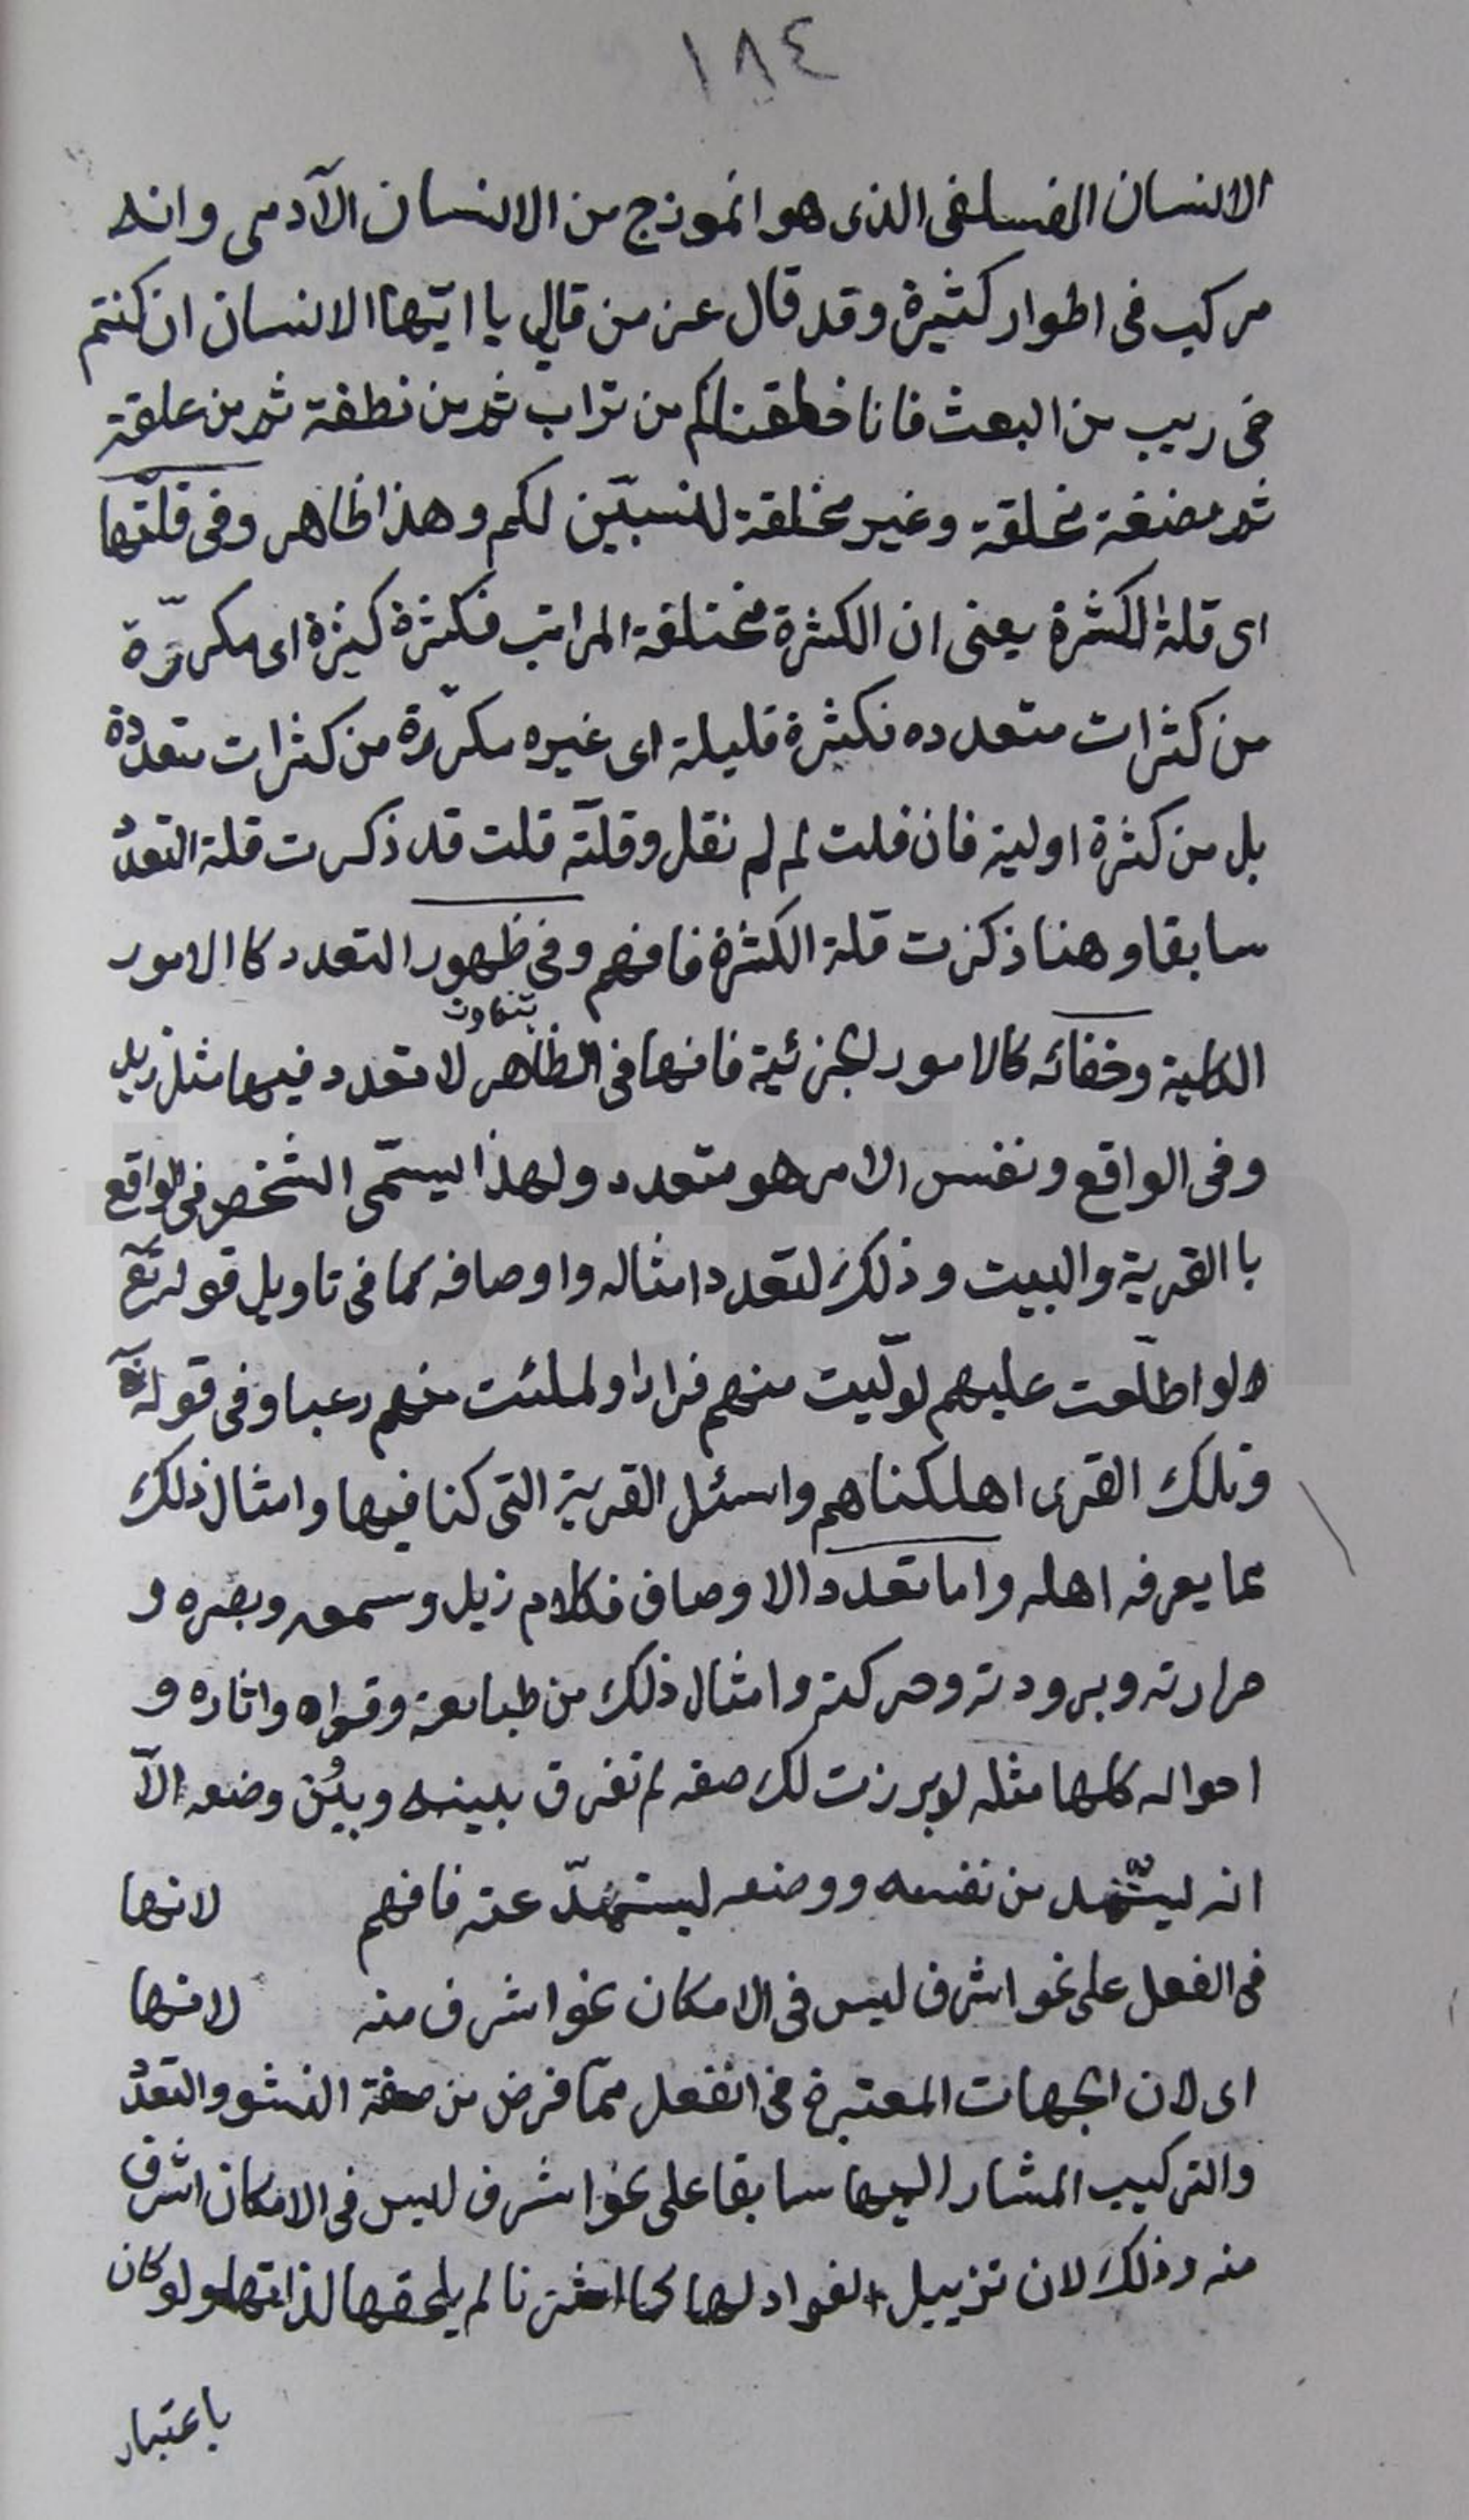 ١٨٤
الانسان الفسلفى الذى هو انموذج من الانسان الآدمى وانه
مركب فى اطوار كثيرة وقد قال عز من قايل يا ايّها الانسان ان كنتم
فى ريب من البعث فانا خلقناكم من تراب ثم من نطفة ثم من علقة
ثم مضغة مخلقة وغير مخلقة لنسبيّن لكم وهذا ظاهر وفى قلّتها
اى قلة الكثرة يعنى ان الكثرة مختلفة المراتب فكثرة كثيرة اى مكررّة
من كثرات متعدده فكثرة قليلة اى غيره مكرّرة من كثرات متعددة
بل من كثرة اولية فان قلت لم لم نقل وقلّته قلت قد ذكرت قلة التعدد
سابقا وهنا ذكرت قلة الكثرة فافهم وفى ظهور التعدد كا الامور
بتفاوت
الكلية وخفائه كالامور الجزئية فانها فى الظاهر لا تعدد فيها مثل زيد
وفى الواقع ونفس الامر هو متعدد ولهذا ليسمّى الشخص فى الواقع
با القرية والبيت وذلك لتعدد امثاله واوصافه كما فى تاويل قوله تع
ه لو اطلّعت عليهم لولّيت منهم فرارا ولملئت منهم رعبا وفى قوله تع
وتلك القرى اهلكناهم واسئل القرية التى كنا فيها وامثال ذلك
مما يعرفه اهله واما تعدد الاوصاف فكلام زيد وسمعه وبصره و
حرارته وبرودته وحركته وامثال ذلك من طبايعه وقواه واثاره و
احواله كلها مثله لو برزت لك صفه لم تفرق بينه وبين وضعه الّا
انه ليستمد من نفسه ووضعه ليستمدّ عنه فافهم لانها
فى الفعل على نحو اشرف ليس فى الامكان نحو اشرف منه لانها
اى لان الجهات المعتبرة فى الفعل ممّا فرض من صفة النشو والتعدد
والتركيب المشار اليها سابقا على نحو اشرف ليس فى الامكان اشرف
منه وذلك لان تزييل الفواد لها كما اشرنا لم يلحقها لذاتها ولو كان
باعتبار